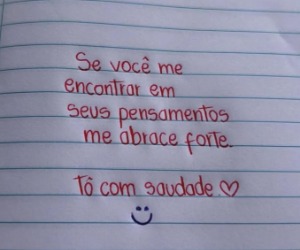 Se você me
encontrar em
seus pensamentos
me abrace forte.
Tô com saudade ♡